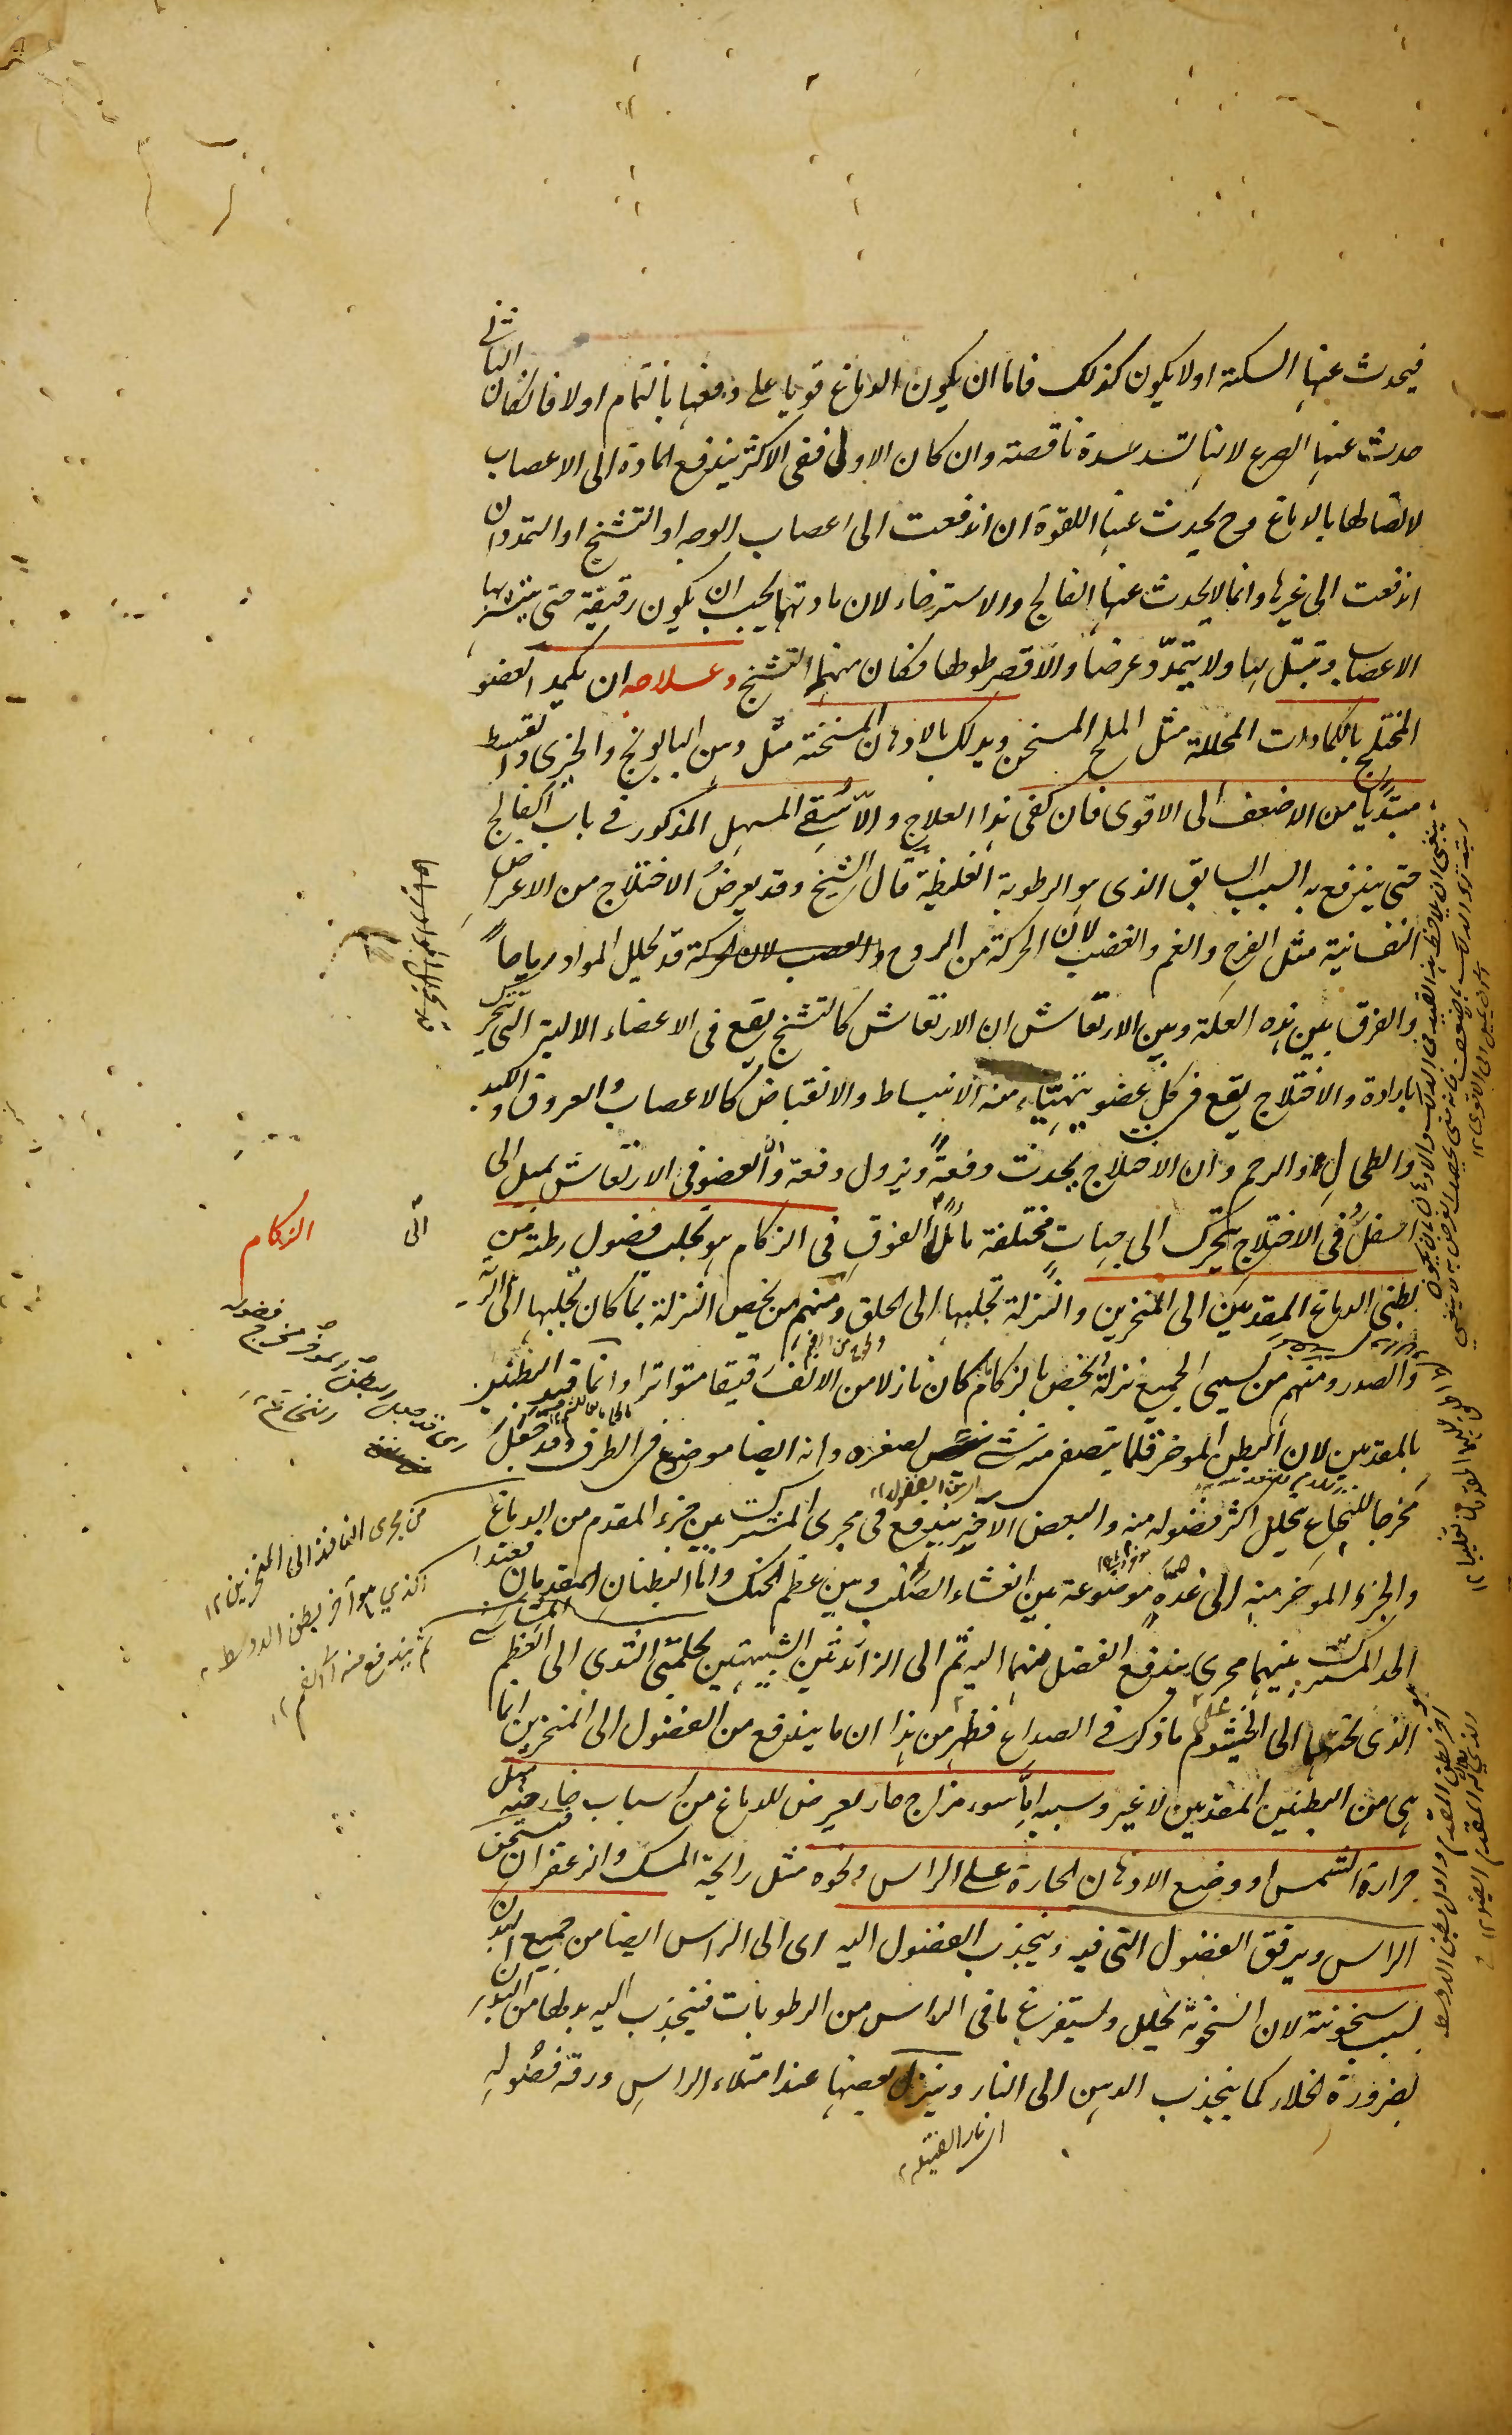 فيحدث عنها السكتة اولا يكون كذلك فاما ان يكون الدماغ قويا على دفعها بالتمام اولا فان كان الثانى
حدث عنها الصرع لانها تسد سدة ناقصة وان كان الاول ففى الاكثر يندفع المادة الى الاعصاب
لاتصالها بالدماغ وح يحدث عنها اللقوة ان اندفعت الى اعصاب الوجه او التشنج او التمدد ان
اندفعت الى غيرها وانما لا يحدث عنها الفالج والاسترخاء لان مادتهما يجب ان يكون رقيقة حتى يتشربها
الاعصاب وتبتل بها ولا يتمدد عرضا والا قصر طولها فكان منها التشنج وعلاجه ان يكمد العضو
المختلج بالكمادات المحللة مثل الملح المسخن ويدلك بالادهان المسخنة مثل دهن البابونج والخيرى والقسط
مبتديا من الاضعف الى الاقوى فان كفى هذا العلاج والا سقى المسهل المذكور فى باب الفالج
حتى يندفع به السبب السابق الذى هو الرطوبة الغليظة قال الشيخ وقد يعرض الاختلاج من الاعراض
النفسانية مثل الفرح والغم والغضب لان الحركة من الروح قد تحلل المواد رياحا
والفرق بين هذه العلة وبين الارتعاش ان الارتعاش كالتشنج يقع فى الاعضاء الالية التى تتحرك
بارادة والاختلاج يقع فى كل عضو يتهيّاء منه الانبساط والانقباض كالاعصاب والعروق والكبد
والطحال والرحم وان الاختلاج يحدث دفعة ويزول دفعة وان العضو فى الارتعاش يميل الى
اسفل وفى الاختلاج يتحرك الى جهات مختلفة مائلا الى الفوق فى الزكام هو تجلب فضول رطبة من
بطنى الدماغ المقدمين الى المنخرين والنزلة تجلبها الى الحلق ومنهم من يخص النزلة بما كان تجلبها الى الرئة
والصدر ومنهم من يسمى الجميع نزلة ويخص بالزكام ما كان نازلا من الانف رقيقا متواترا وانما قيد البطنين
بالمقدمين لان البطن الموخر قلما يتصفى منه شئ لصغره وانه ايضا موضوع فى الطرف وقد جعل
مخرجا للنخاع يتحلل اكثر فضوله منه والبعض الآخر يندفع فى مجرى المشترك بين جزء المقدم من الدماغ
والجزء الموخر منه الى غدة موضوعة بين الغشاء الصلب وبين عظم الحنك واما البطنان المقدمان فعند
الحد المشترك بينهما مجرى يندفع الفضل منهما اليه ثم الى الزائدتين الشبيهتين بحلمتى الثدى الى العظم المشاشى
الذى تحتهما الى الخيشوم على ما ذكر فى الصداع فظهر من هذا ان ما يندفع من الفضول الى المنخرين انما
هى من البطنين المقدمين لا غير وسببه اما سوء مزاج حار يعرض للدماغ من اسباب خارجية مثل
حرارة الشمس او وضع الادهان الحارة على الراس ونحوه مثل رايحة المسك والزعفران فيسخن
الراس ويرقق الفضول التى فيه وينجذب الفضول اليه اى الى الراس ايضا من جميع البدن
بسبب سخونته لان السخونة تحلل وتستفرغ ما فى الراس من الرطوبات فينجذب اليه بدلها من البدن
لضرورة الخلاء كما ينجذب الدهن الى النار وينزل بعضها عند امتلاء الراس ورقة فضوله
الزكام
الى
من مجرى النافذ الى المنخرين ١٢
الذي هو آخر بطن الاوسط
ثم يندفع منه الى الفم